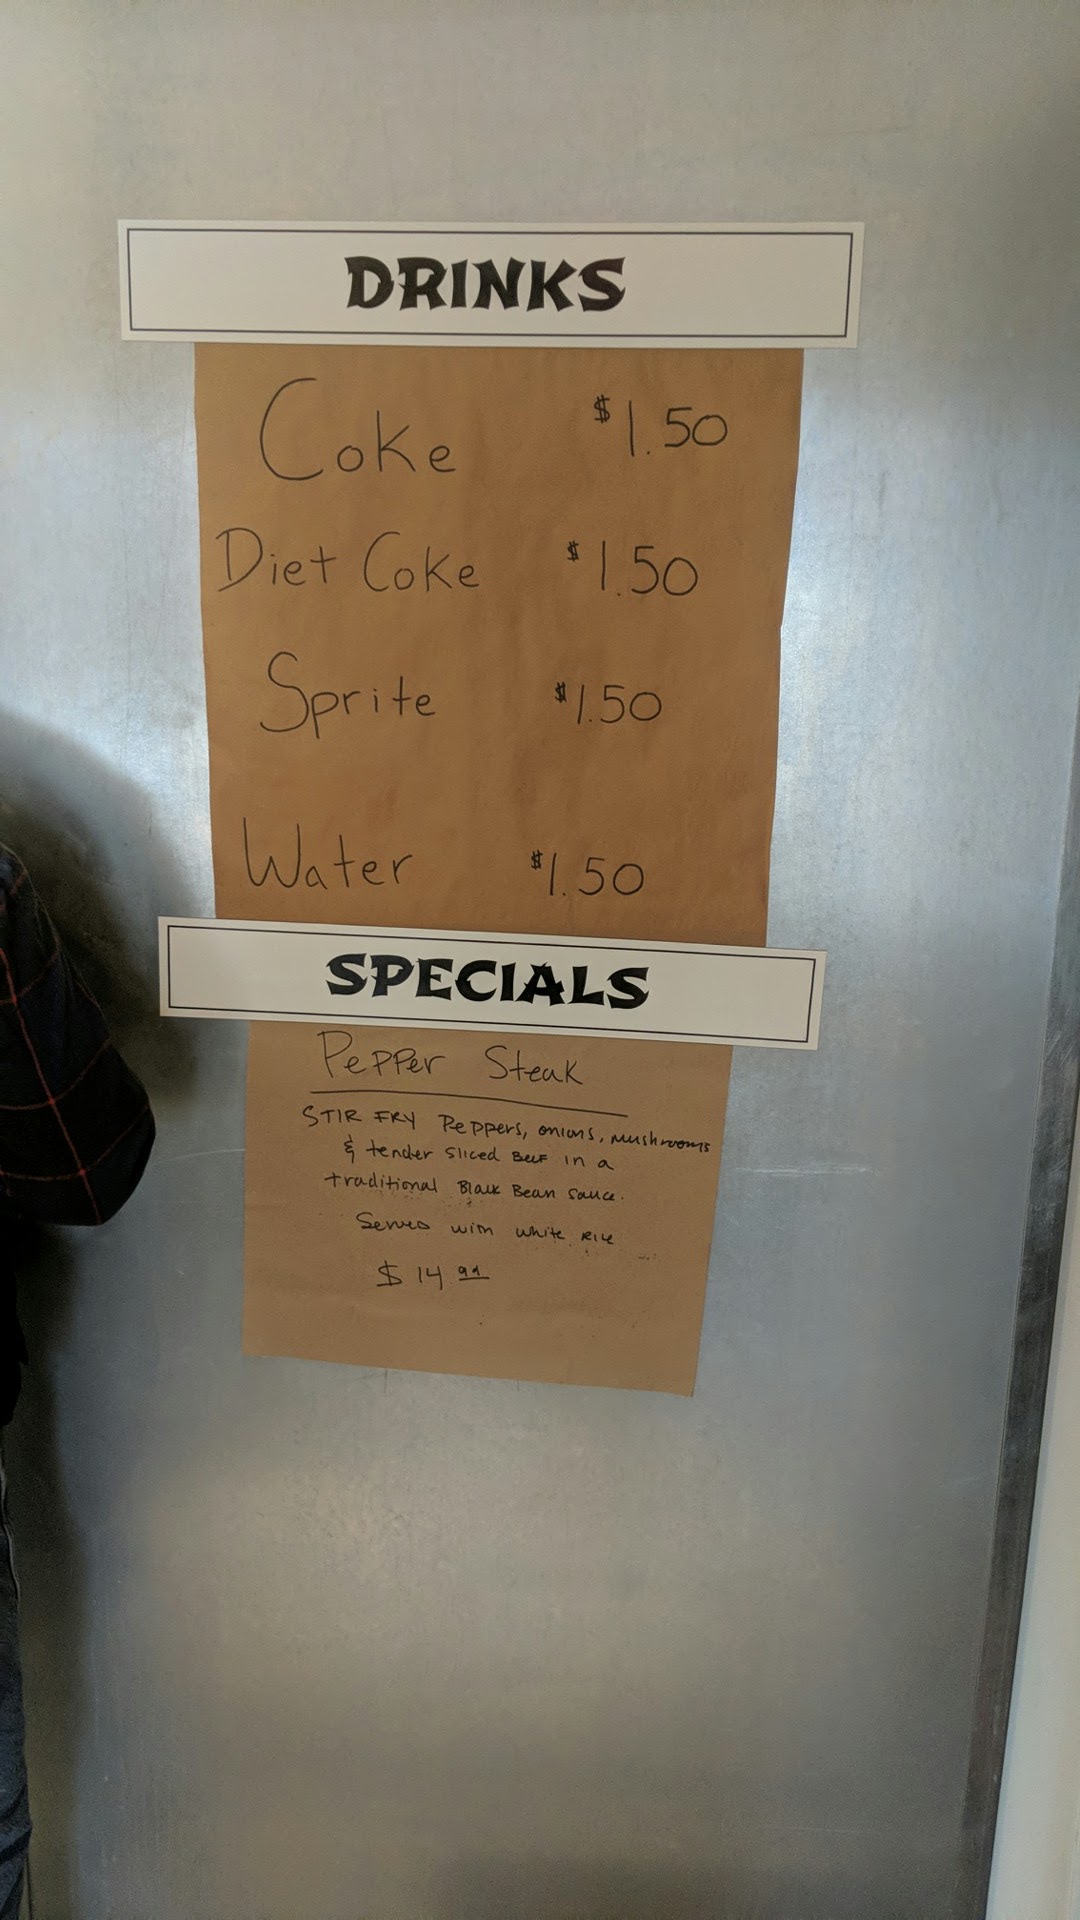 DRINKS
Coke $1.50
Diet Coke $1.50
Sprite $1.50
Water $1.50
SPECIALS
Pepper Steak
STIR FRY Peppers, onions, mushrooms
& tender sliced BEEF in a
traditional Black Bean sauce.
Served with white RICE
$14.99